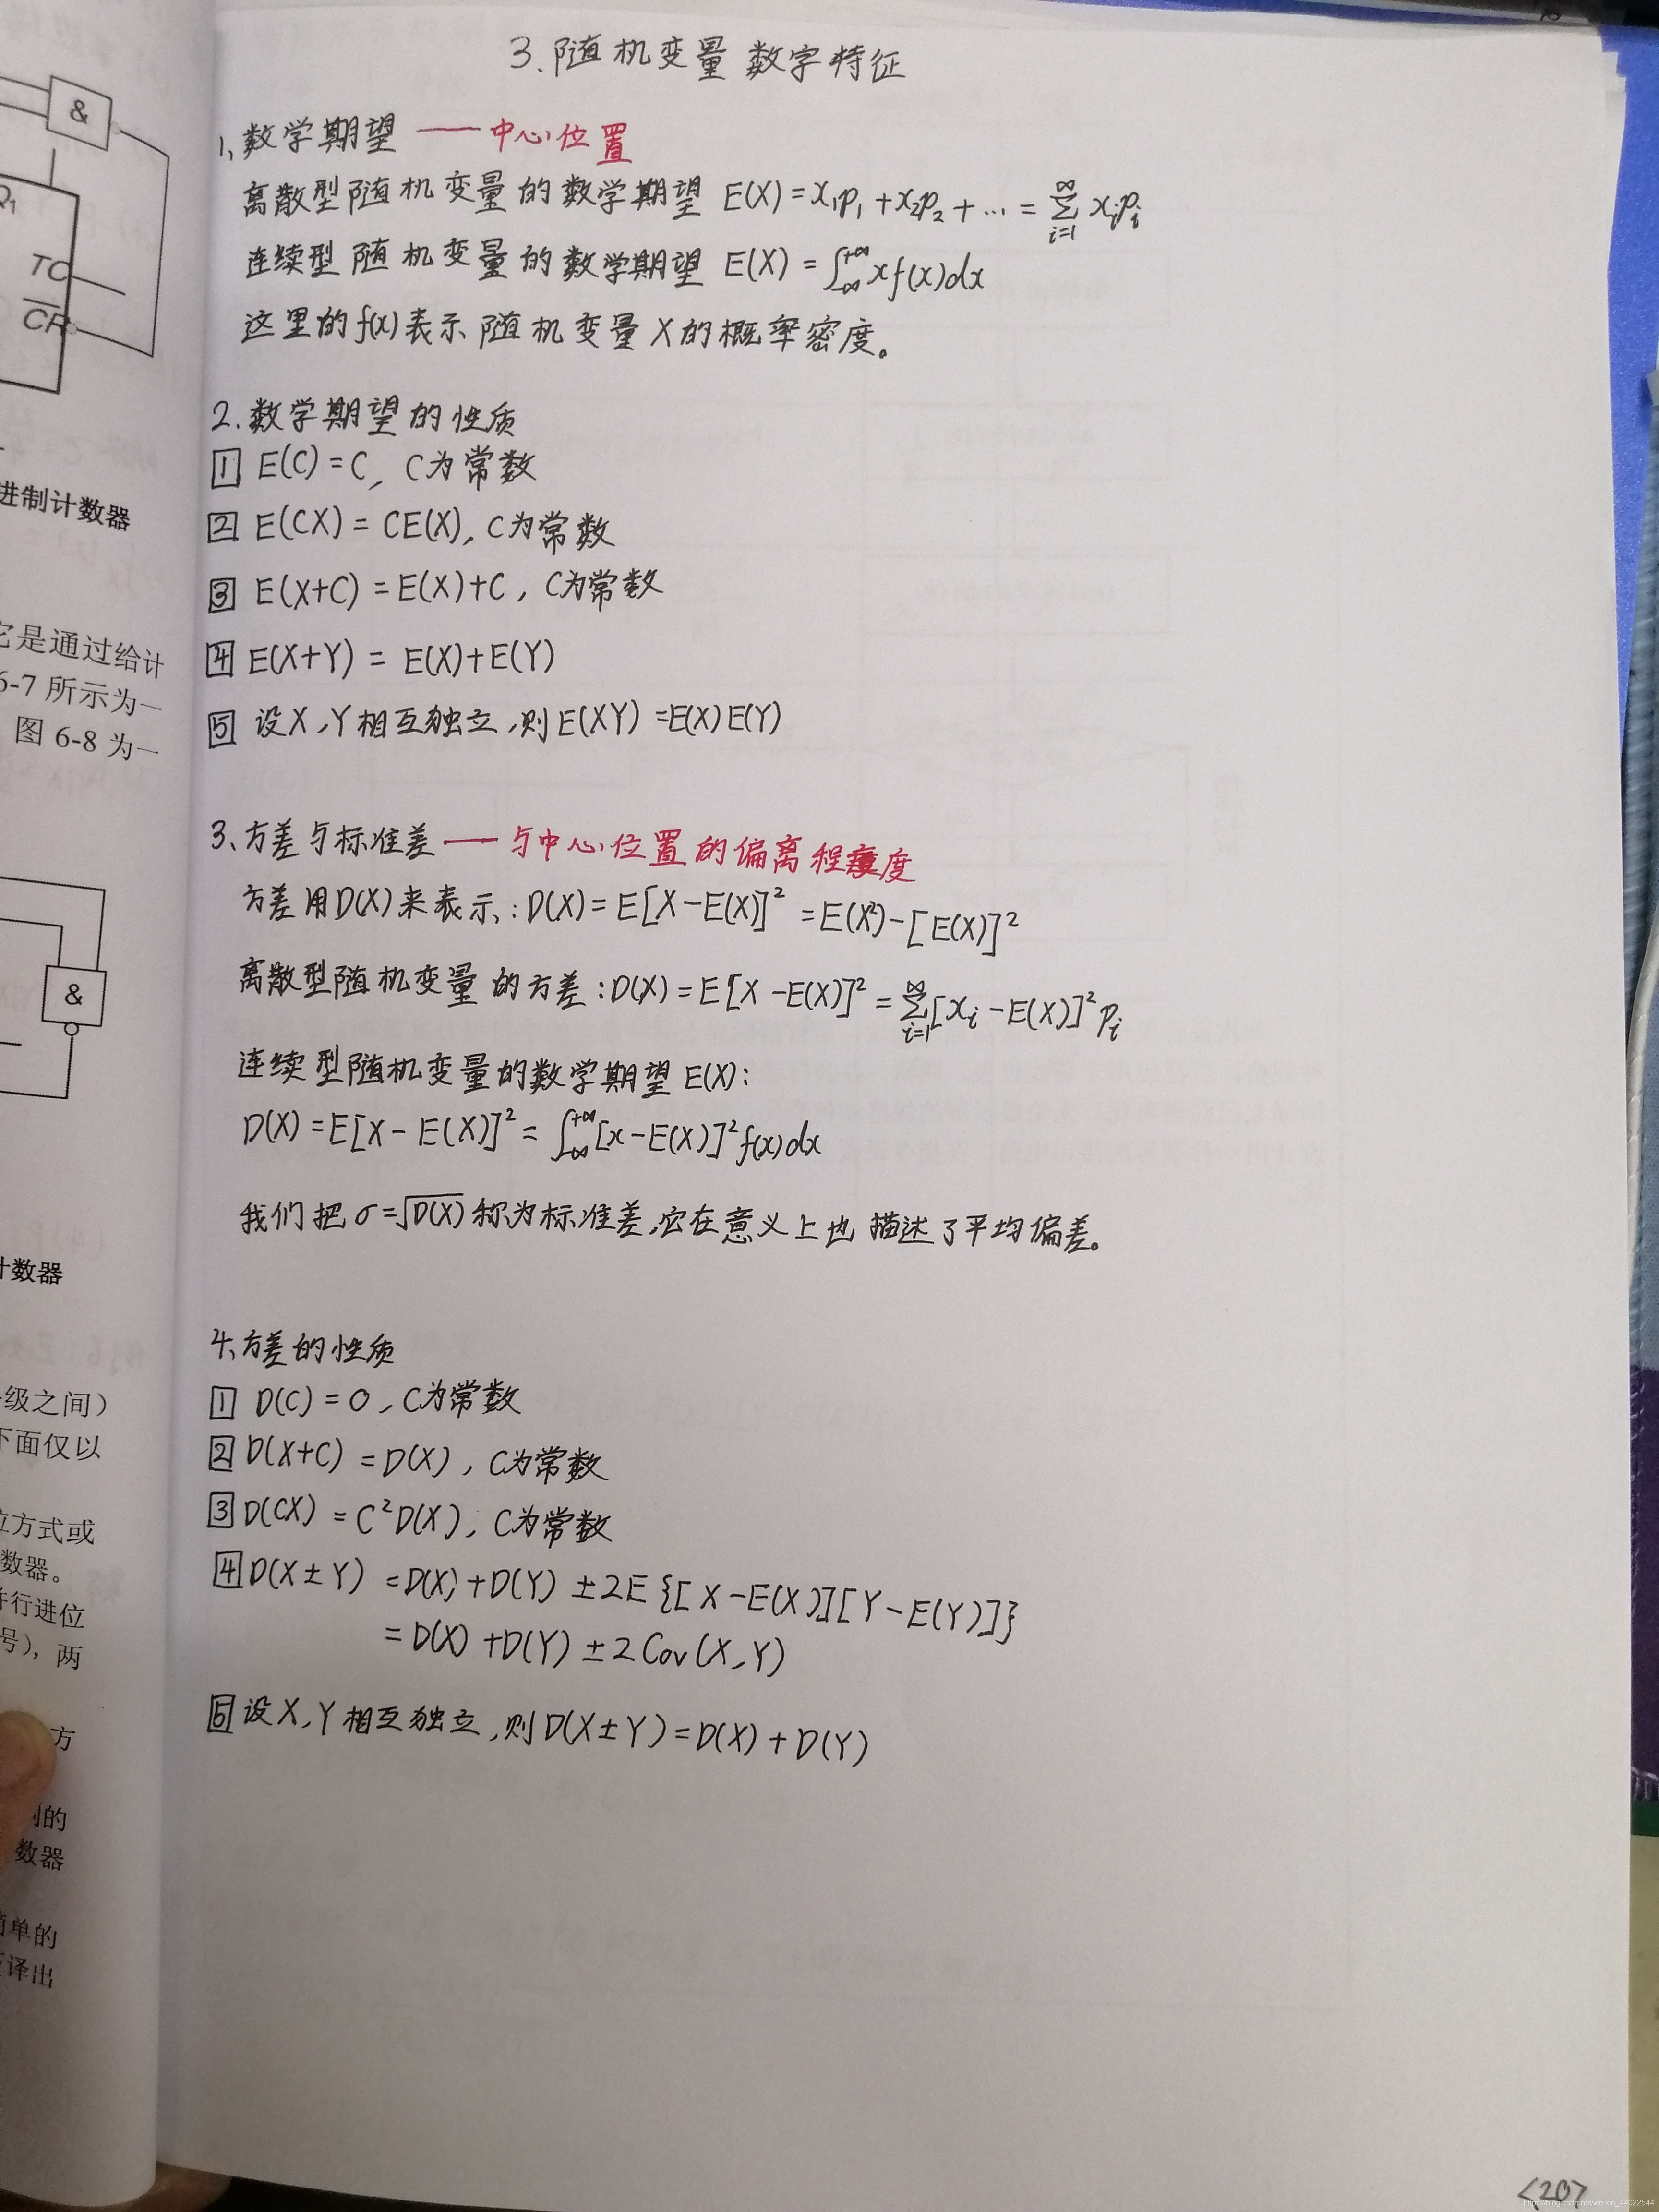 3.随机变量 数字特征
1、数学期望 —— 中心位置
离散型随机变量的数学期望 E(X)=x₁p₁+x₂p₂+…=∑_{i=1}^{∞} xᵢpᵢ
连续型随机变量的数学期望 E(X)=∫_{-∞}^{+∞} xf(x)dx
这里的f(x)表示随机变量X的概率密度。
2.数学期望的性质
1 E(C)=C, C为常数
2 E(CX)=CE(X), C为常数
3 E(X+C)=E(X)+C, C为常数
4 E(X+Y)=E(X)+E(Y)
5 设X,Y相互独立,则E(XY)=E(X)E(Y)
3、方差与标准差 —— 与中心位置的偏离程度
方差用D(X)来表示:D(X)=E[X-E(X)]²=E(X²)-[E(X)]²
离散型随机变量的方差:D(X)=E[X-E(X)]²=∑_{i=1}^{∞}[xᵢ-E(X)]²pᵢ
连续型随机变量的数学期望E(X):
D(X)=E[X-E(X)]²=∫_{-∞}^{+∞}[x-E(X)]²f(x)dx
我们把σ=√D(X)称为标准差,它在意义上也描述了平均偏差。
4、方差的性质
1 D(C)=0, C为常数
2 D(X+C)=D(X), C为常数
3 D(CX)=C²D(X), C为常数
4 D(X±Y)=D(X)+D(Y)±2E{[X-E(X)][Y-E(Y)]}
=D(X)+D(Y)±2Cov(X,Y)
5 设X,Y相互独立,则D(X±Y)=D(X)+D(Y)
<20>
&
Q₁
TC
CR
进制计数器
它是通过给计
6-7 所示为一
图 6-8 为一
&
计数器
级之间）
下面仅以
位方式或
数器。
并行进位
号），两
方
的
数器
简单的
译出
https://blog.csdn.net/weixin_44022544